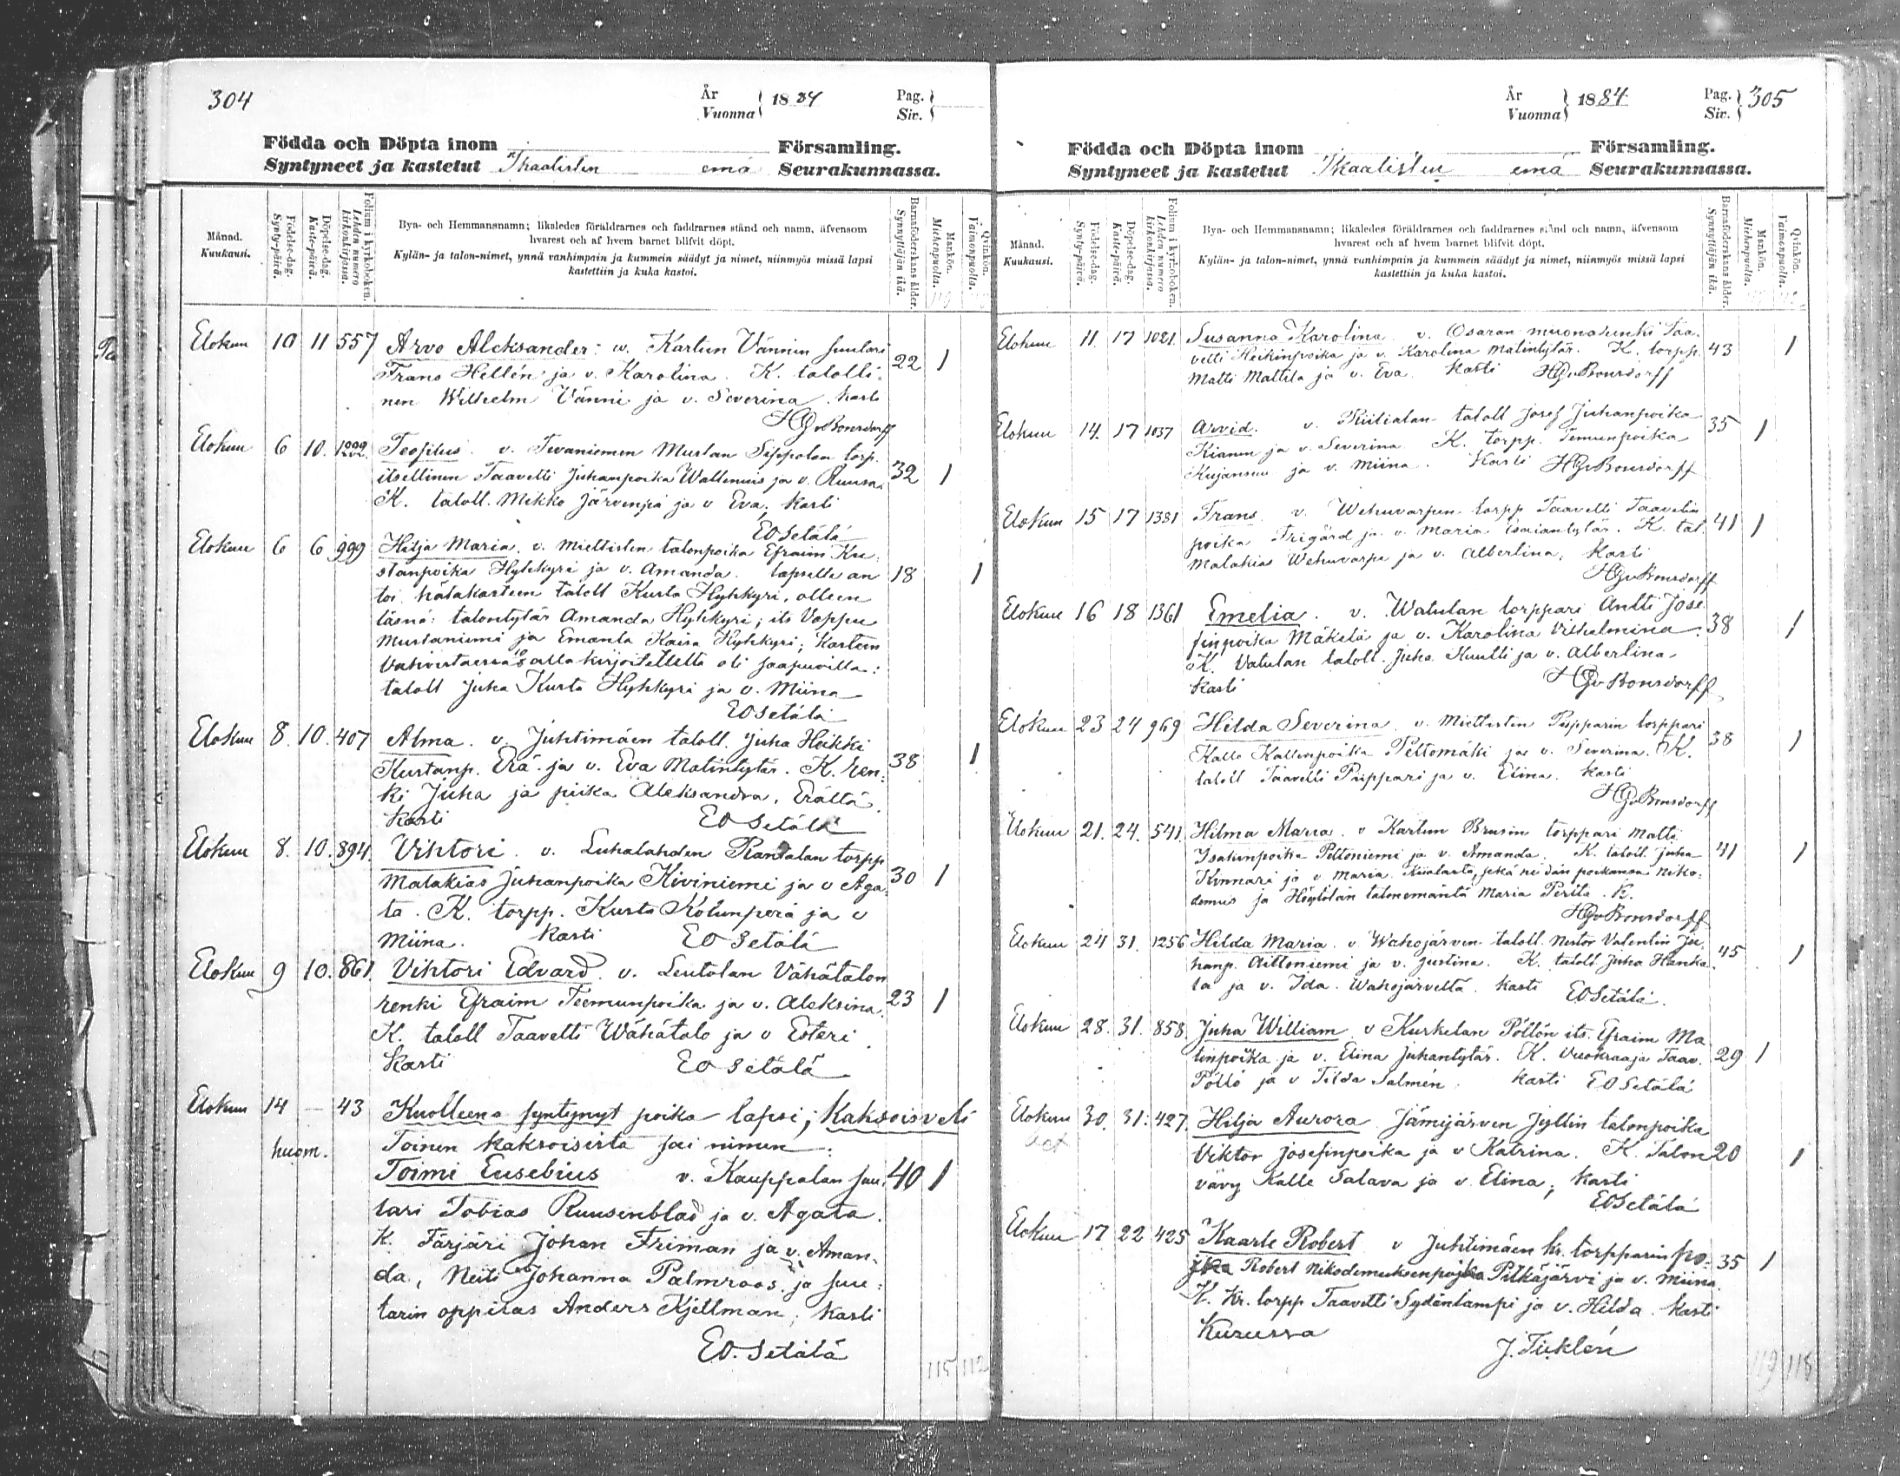 304
År
Vuonna
1884
Pag.
Siv.
Födda och Döpta inom
Församling.
Syntyneet ja kastetut Ikaalisten emä Seurakunnassa.
Månad.
Kuukausi.
Födelse-dag.
Synty-päivä.
Döpelse-dag.
Kaste-päivä.
Folium i kyrkoboken.
Lehden numero kirkonkirjassa.
Bya- och Hemmansnamn; likaledes föräldrarnes och faddrarnes stånd och namn, äfvensom
hvarest och af hvem barnet blifvit döpt.
Kylän- ja talon-nimet, ynnä vanhimpain ja kummein säädyt ja nimet, niinmyös missä lapsi
kastettiin ja kuka kastoi.
Barnaföderskans ålder.
Synnyttäjän ikä.
Mankön.
Miehenpuolta.
Qvinkön.
Vaimonpuolta.
Elokuu 10 11 557 Arvo Aleksander: v. Kartun Vännin suutari 22 1
Frans Hellén ja v. Karolina. K. talolli-
nen Wilhelm Vänni ja v. Severina, kasti
HGvBonsdorff
Elokuu 6 10. 1222. Teofilus. v. Mustan Sippolan torp. 32 1
itsellinen Taavetti Juhanpoika Wallenius ja v. Ruusa.
K. taloll. Mikko Järvenpä ja v Eva, kasti
EO Setälä
Elokuu 6 6 999 Hilja Maria. v. Miettisten talonpoika Efraim Ku- 18 1
stanpoika Hyhkyri ja v. Amanda. lapselle an
toi hätäkasteen taloll Kusta Hyhkyri, olleen
läsnä: talontytär Amanda Hyhkyri; its Vappu
Mustaniemi ja Emänta Kaisa Hyhkyri; Kasteen
Vahvistaessa 10/8 alla kirjoitetulta oli saapuvilla:
taloll Juha Kusta Hyhkyri ja v. Miina
EO Setälä
Elokuu 8. 10. 407 Alma. v. Juhtimäen taloll. Juha Heikki 38 1
Kustanp. Erä ja v. Eva Matintytär. K. ren-
ki Juha ja piika Aleksandra, Erältä
kasti EO Setälä
Elokuu 8. 10. 894. Vihtori. v. Luhalahden Rantalan torpp 30 1
Malakias Juhanpoika Kiviniemi ja v Aga-
ta. K. torpp. Kusta Kolunperä ja v
Miina. kasti EO Setälä
Elokuu 9 10. 861. Vihtori Edvard. v. Leutolan Vähätalon
renki Efraim Teemunpoika ja v. Aleksina. 23 1
K. taloll Taavetti Wähätalo ja v Esteri.
Kasti EO Setälä
Elokuu 14 — 43 Kuolleena syntynyt poika lapsi; Kaksoisveli
huom. Toinen kaksoisista sai nimen:
Toimi Eusebius v. Kauppalan suu- 40 1
tari Tobias Ruusinblad ja v. Agata.
K. Färjäri Johan Friman ja v. Aman-
da, Neiti Johanna Palmroos ja suu-
tarin oppilas Anders Kjellman; kasti
EO. Setälä
115 112
År
Vuonna
1884
Pag.
Siv.
305
Födda och Döpta inom
Församling.
Syntyneet ja kastetut Ikaalisten emä Seurakunnassa.
Månad.
Kuukausi.
Födelse-dag.
Synty-päivä.
Döpelse-dag.
Kaste-päivä.
Folium i kyrkoboken.
Lehden numero kirkonkirjassa.
Bya- och Hemmansnamn; likaledes föräldrarnes och faddrarnes stånd och namn, äfvensom
hvarest och af hvem barnet blifvit döpt.
Kylän- ja talon-nimet, ynnä vanhimpain ja kummein säädyt ja nimet, niinmyös missä lapsi
kastettiin ja kuka kastoi.
Barnaföderskans ålder.
Synnyttäjän ikä.
Mankön.
Miehenpuolta.
Qvinkön.
Vaimonpuolta.
Elokuu 11. 17 1021. Susanna Karolina. v. Osaran muonarenki Taa- 43 1
vetti Heikinpoika ja v. Karolina Matintytär. K. torpp.
Matti Mattila ja v. Eva. kasti HGvBonsdorff
Elokuu 14. 17 1037 Arvid. v. taloll Josef Juhanpoika 35 1
Kianen ja v. Severina. K. torpp. Temunpoika
Kujansuu ja v. Miina. kasti HGvBonsdorff
Elokuu 15 17 1381 Frans v. Wehuvarpen torpp Taavetti Taavetin 41 1
poika Frigård ja v. Maria Esaiantytär. K. tal.
Malakias Wehuvarpe ja v. Albertina. kasti
HGvBonsdorff
Elokuu 16 18 1361 Emelia. v. Watulan torppari Antti Jose 38 1
finpoika Mäkelä ja v. Karolina Vilhelmina.
K. Vatulan taloll. Juho Knutti ja v. Albertina.
kasti HGvBonsdorff
Elokuu 23 24 969 Hilda Severina. v. Miettisten Pupparin torppari 38 1
Kalle Kallenpoika Peltomäki ja v. Severina. K.
taloll Taavetti Puppari ja v. Elina. kasti
HGvBonsdorff
Elokuu 21. 24. 541. Hilma Maria. v Kartun Brusin torppari Matti 41 1
Isakinpoika Peltoniemi ja v. Amanda. K. taloll. Juha
Kinnari ja v Maria. sekä poikansa Niko-
demus ja talonemäntä Maria
HGvBonsdorff
Elokuu 24 31. 1256 Hilda Maria. v. Wahojärven taloll. Nestor Valentin Ju- 45 1
hanp. Aittoniemi ja v. Justina. K. taloll. Juha Hanka-
la ja v. Ida. Wahojärveltä. kasti EO Setälä.
Elokuu 28. 31. 858. Juha William v Kurkelan Pöllön its. Efraim Ma 29 1
tinpoika ja v. Elina Juhantytär. K. Vuokraaja Taav.
Pöllö ja v Tilda Salmén. kasti EO Setälä
Elokuu 30. 31. 427. Hilja Aurora. Jämijärven Jyllin talonpoika
Viktor Josefinpoika ja v Katrina. K. Talon 20 1
vävy Kalle Salava ja v. Elina; kasti
EO Setälä
Elokuu 17 22 425 Kaarle Robert v Juhtimäen kr. torpparin po- 35 1
ika Robert Nikodemuksenpoika Pitkäjärvi ja v. Miina
K. Kr. torpp Taavetti Sydänlampi ja v. Hilda kasti
Kurussa J. Ticklén
119 118